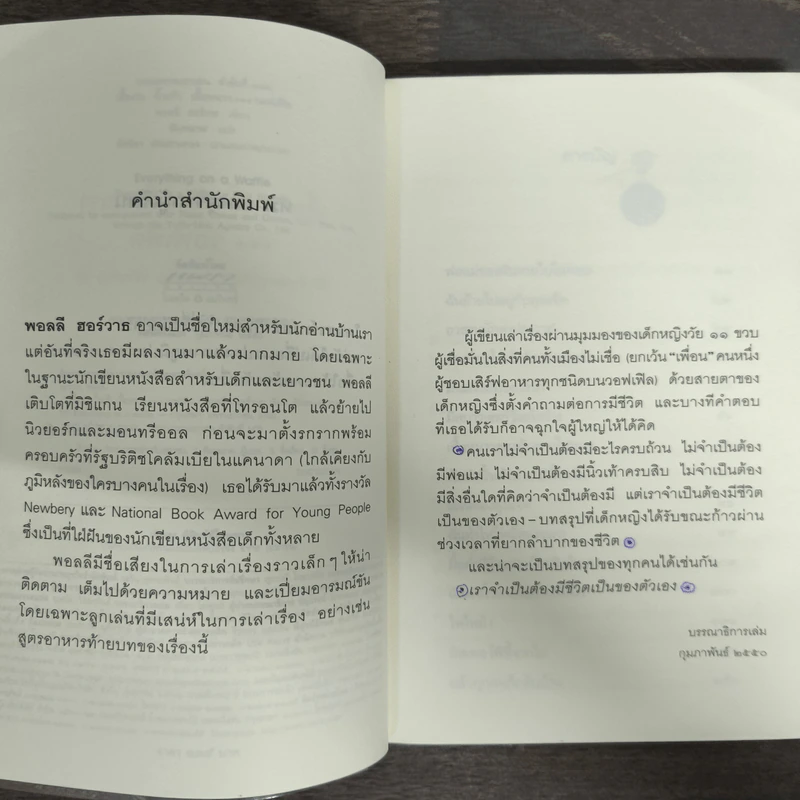 คำนำสำนักพิมพ์
พอลลี ฮอร์วาธ อาจเป็นชื่อใหม่สำหรับนักอ่านบ้านเรา
แต่อันที่จริงเธอมีผลงานมาแล้วมากมาย โดยเฉพาะ
ในฐานะนักเขียนหนังสือสำหรับเด็กและเยาวชน พอลลี
เติบโตที่มิชิแกน เรียนหนังสือที่โทรอนโต แล้วย้ายไป
นิวยอร์กและมอนทรีออล ก่อนจะมาตั้งรกรากพร้อม
ครอบครัวที่รัฐบริติชโคลัมเบียในแคนาดา (ใกล้เคียงกับ
ภูมิหลังของใครบางคนในเรื่อง) เธอได้รับมาแล้วทั้งรางวัล
Newbery และ National Book Award for Young People
ซึ่งเป็นที่ใฝ่ฝันของนักเขียนหนังสือเด็กทั้งหลาย
พอลลีมีชื่อเสียงในการเล่าเรื่องราวเล็กๆ ให้น่า
ติดตาม เต็มไปด้วยความหมาย และเปี่ยมอารมณ์ขัน
โดยเฉพาะลูกเล่นที่มีเสน่ห์ในการเล่าเรื่อง อย่างเช่น
สูตรอาหารท้ายบทของเรื่องนี้
ผู้เขียนเล่าเรื่องผ่านมุมมองของเด็กหญิงวัย ๑๑ ขวบ
ผู้เชื่อมั่นในสิ่งที่คนทั้งเมืองไม่เชื่อ (ยกเว้น "เพื่อน" คนหนึ่ง
ผู้ชอบเสิร์ฟอาหารทุกชนิดบนวอฟเฟิล) ด้วยสายตาของ
เด็กหญิงซึ่งตั้งคำถามต่อการมีชีวิต และบางทีคำตอบ
ที่เธอได้รับก็อาจฉุกใจผู้ใหญ่ให้ได้คิด
คนเราไม่จำเป็นต้องมีอะไรครบถ้วน ไม่จำเป็นต้อง
มีพ่อแม่ ไม่จำเป็นต้องมีนิ้วเท้าครบสิบ ไม่จำเป็นต้อง
มีสิ่งอื่นใดที่คิดว่าจำเป็นต้องมี แต่เราจำเป็นต้องมีชีวิต
เป็นของตัวเอง – บทสรุปที่เด็กหญิงได้รับขณะก้าวผ่าน
ช่วงเวลาที่ยากลำบากของชีวิต
และน่าจะเป็นบทสรุปของทุกคนได้เช่นกัน
เราจำเป็นต้องมีชีวิตเป็นของตัวเอง
บรรณาธิการเล่ม
กุมภาพันธ์ ๒๕๕๐